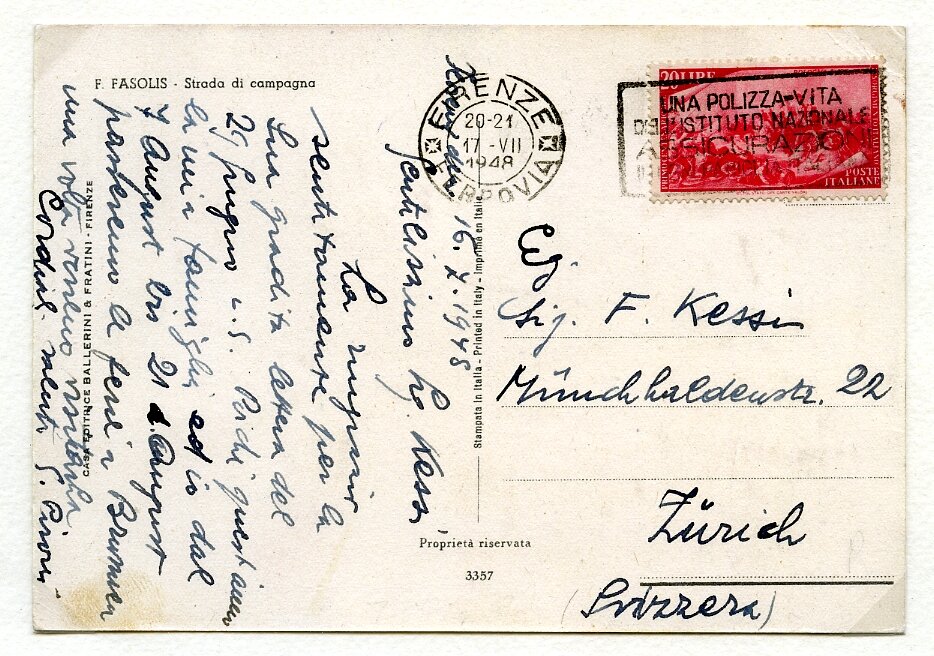 F. FASOLIS - Strada di campagna
FIRENZE
20-21
17 -VII
1948
FERROVIA
20 LIRE
POSTE
ITALIANE
UNA POLIZZA-VITA
DELL'ISTITUTO NAZIONALE
ASSICURAZIONI
16. 7. 1948
Gentilissimo Sig. Kessi
La ringrazio
sentitamente per la
Sua gradita lettera del
29 Giugno u.s. Quest'anno
la mia famiglia ed io dal
7 August bis 21 d. August
passeremo le ferie a Brunnen
una volta verremo visitarla
Cordial. saluti
CASA EDITRICE BALLERINI & FRATINI - FIRENZE
Stampata in Italia - Printed in Italy - Imprimé en Italie
Sig. F. Kessi
Münchhaldenstr. 22
Zürich
(Svizzera)
Proprietà riservata
3357